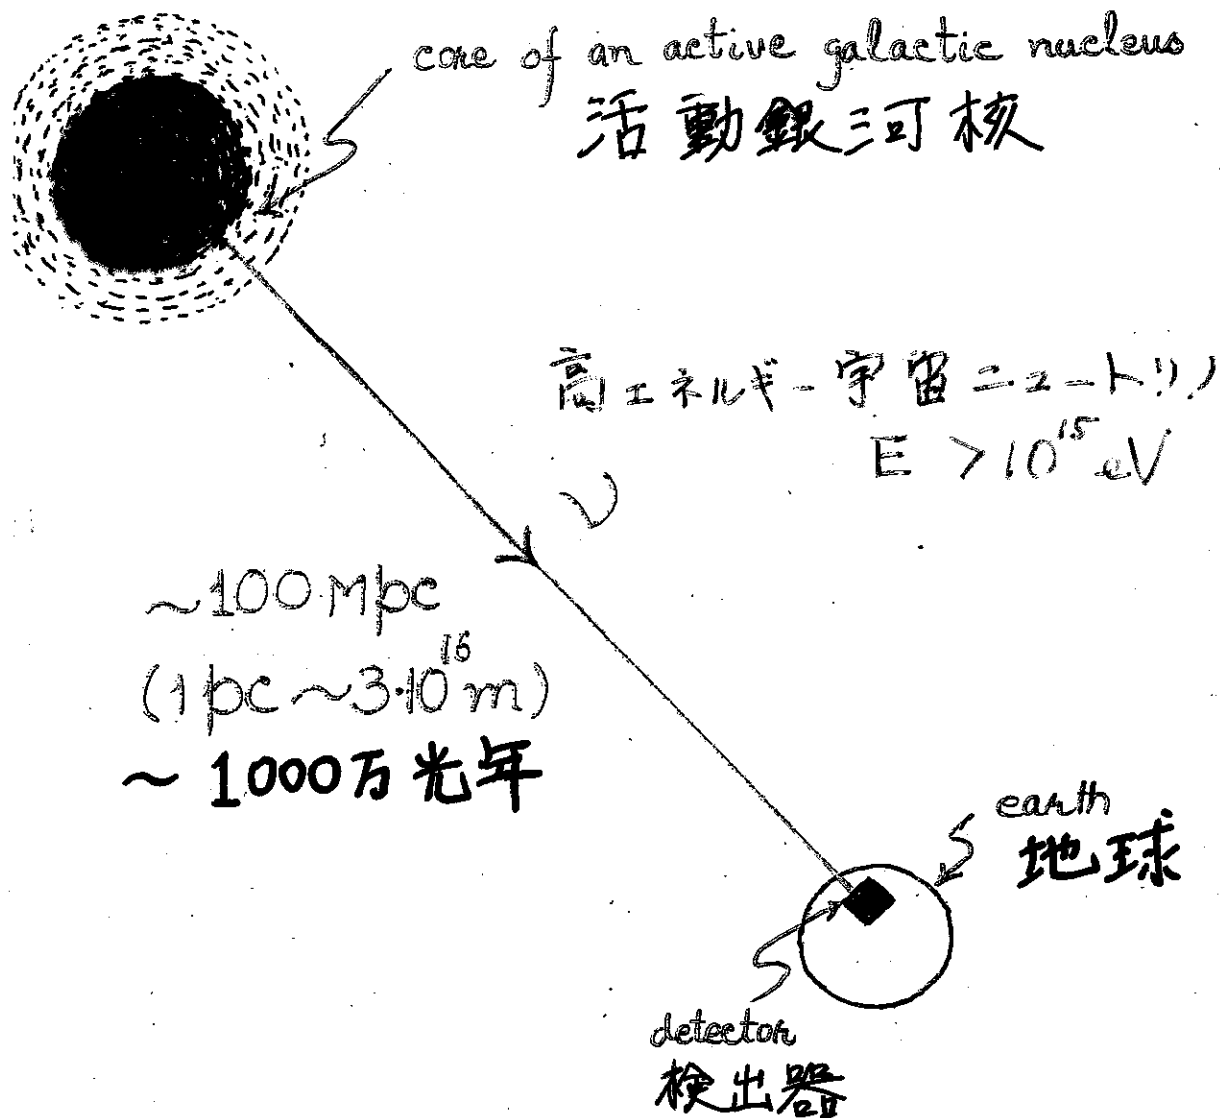 core of an active galactic nucleus
活動銀河核
高エネルギー宇宙ニュートリノ
E > 10¹⁵ eV
ν
~100 Mpc
(1 pc ~ 3·10¹⁶ m)
~ 1000万光年
earth
地球
detector
検出器